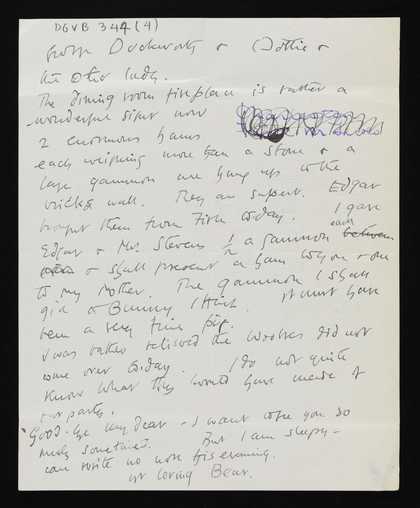 DGVB 344 (4)
George Duckworth & Dottie &
the other lady.
The dining room fireplace is rather a
wonderful sight now
2 enormous hams
each weighing more than a stone & a
large gammon are hung up to the
bricks wall. They are superb. Edgar
brought them from Firle today. I gave
Edgar & Mrs Stevens ½ a gammon each between
& shall present a ham to you & one
to my Mother. The gammon I shall
give to Bunny I think. It must have
been a very fine pig.
I was rather relieved the Woolves did not
come over today. I do not quite
know what they would have made of
our party.
Good-bye my dear - I want to see you so
much sometimes. But I am sleepy -
can write no more this evening.
yr loving Bear.